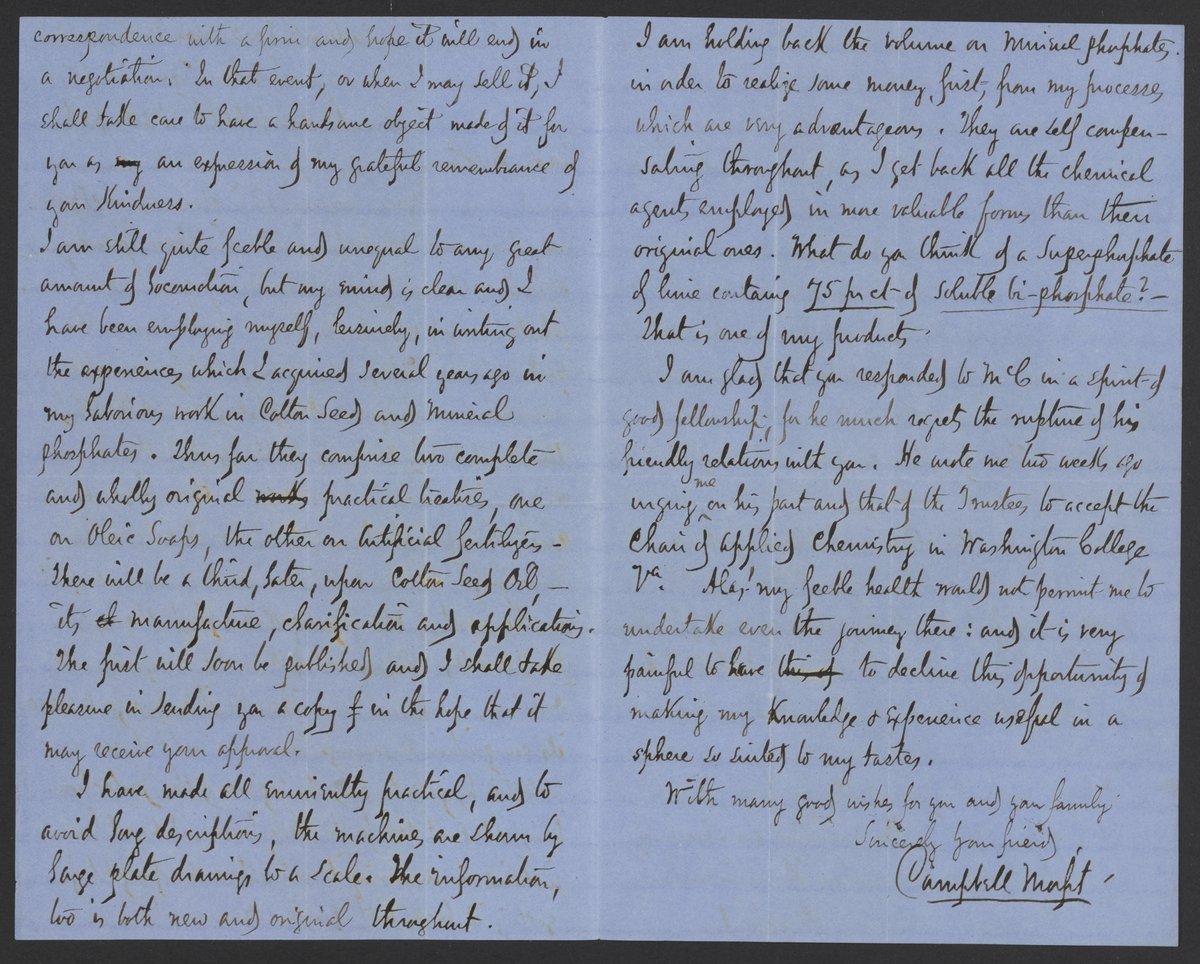 correspondence with a firm and hope it will end in
a negotiation. In that event, or when I may sell it, I
shall take care to have a handsome object made of it for
you as my an expression of my grateful remembrance of
your Kindness.
I am still quite feeble and unequal to any great
amount of locomotion, but my mind is clear and I
have been employing myself, leisurely, in writing out
the experiences which I acquired several years ago in
my laborious work in Cotton Seed and Mineral
phosphates. Thus far they comprise two complete
and wholly original works practical treatises, one
on Oleic Soaps, the other on Artificial fertilizers –
There will be a third, later, upon Cotton Seed Oil, –
its manufacture, clarification and applications.
The first will soon be published and I shall take
pleasure in sending you a copy in the hope that it
may receive your approval.
I have made all eminently practical, and to
avoid long descriptions, the machines are shown by
large plate drawings to a scale. The information,
too is both new and original throughout.
I am holding back the volume on Mineral phosphates.
in order to realize some money, first, from my processes
which are very advantageous. They are self compen–
sating throughout, as I get back all the chemical
agents employed in more valuable forms than their
original ones. What do you think of a Superphosphate
of lime containg 75 pr ct of soluble bi-phosphate? –
That is one of my products.
I am glad that you responded to McC in a spirit of
good fellowship; for he much regrets the rupture of his
friendly relations with you. He wrote me two weeks ago
urging me on his part and that of the Trustees to accept the
Chair of applied Chemistry in Washington College
Va. Alas! my feeble health would not permit me to
undertake even the journey there: and it is very
painful to have this of to decline this opportunity of
making my Knowledge & Experience useful in a
sphere so suited to my tastes.
With many good wishes for you and your family
Sincerely your friend,
Campbell Morfit